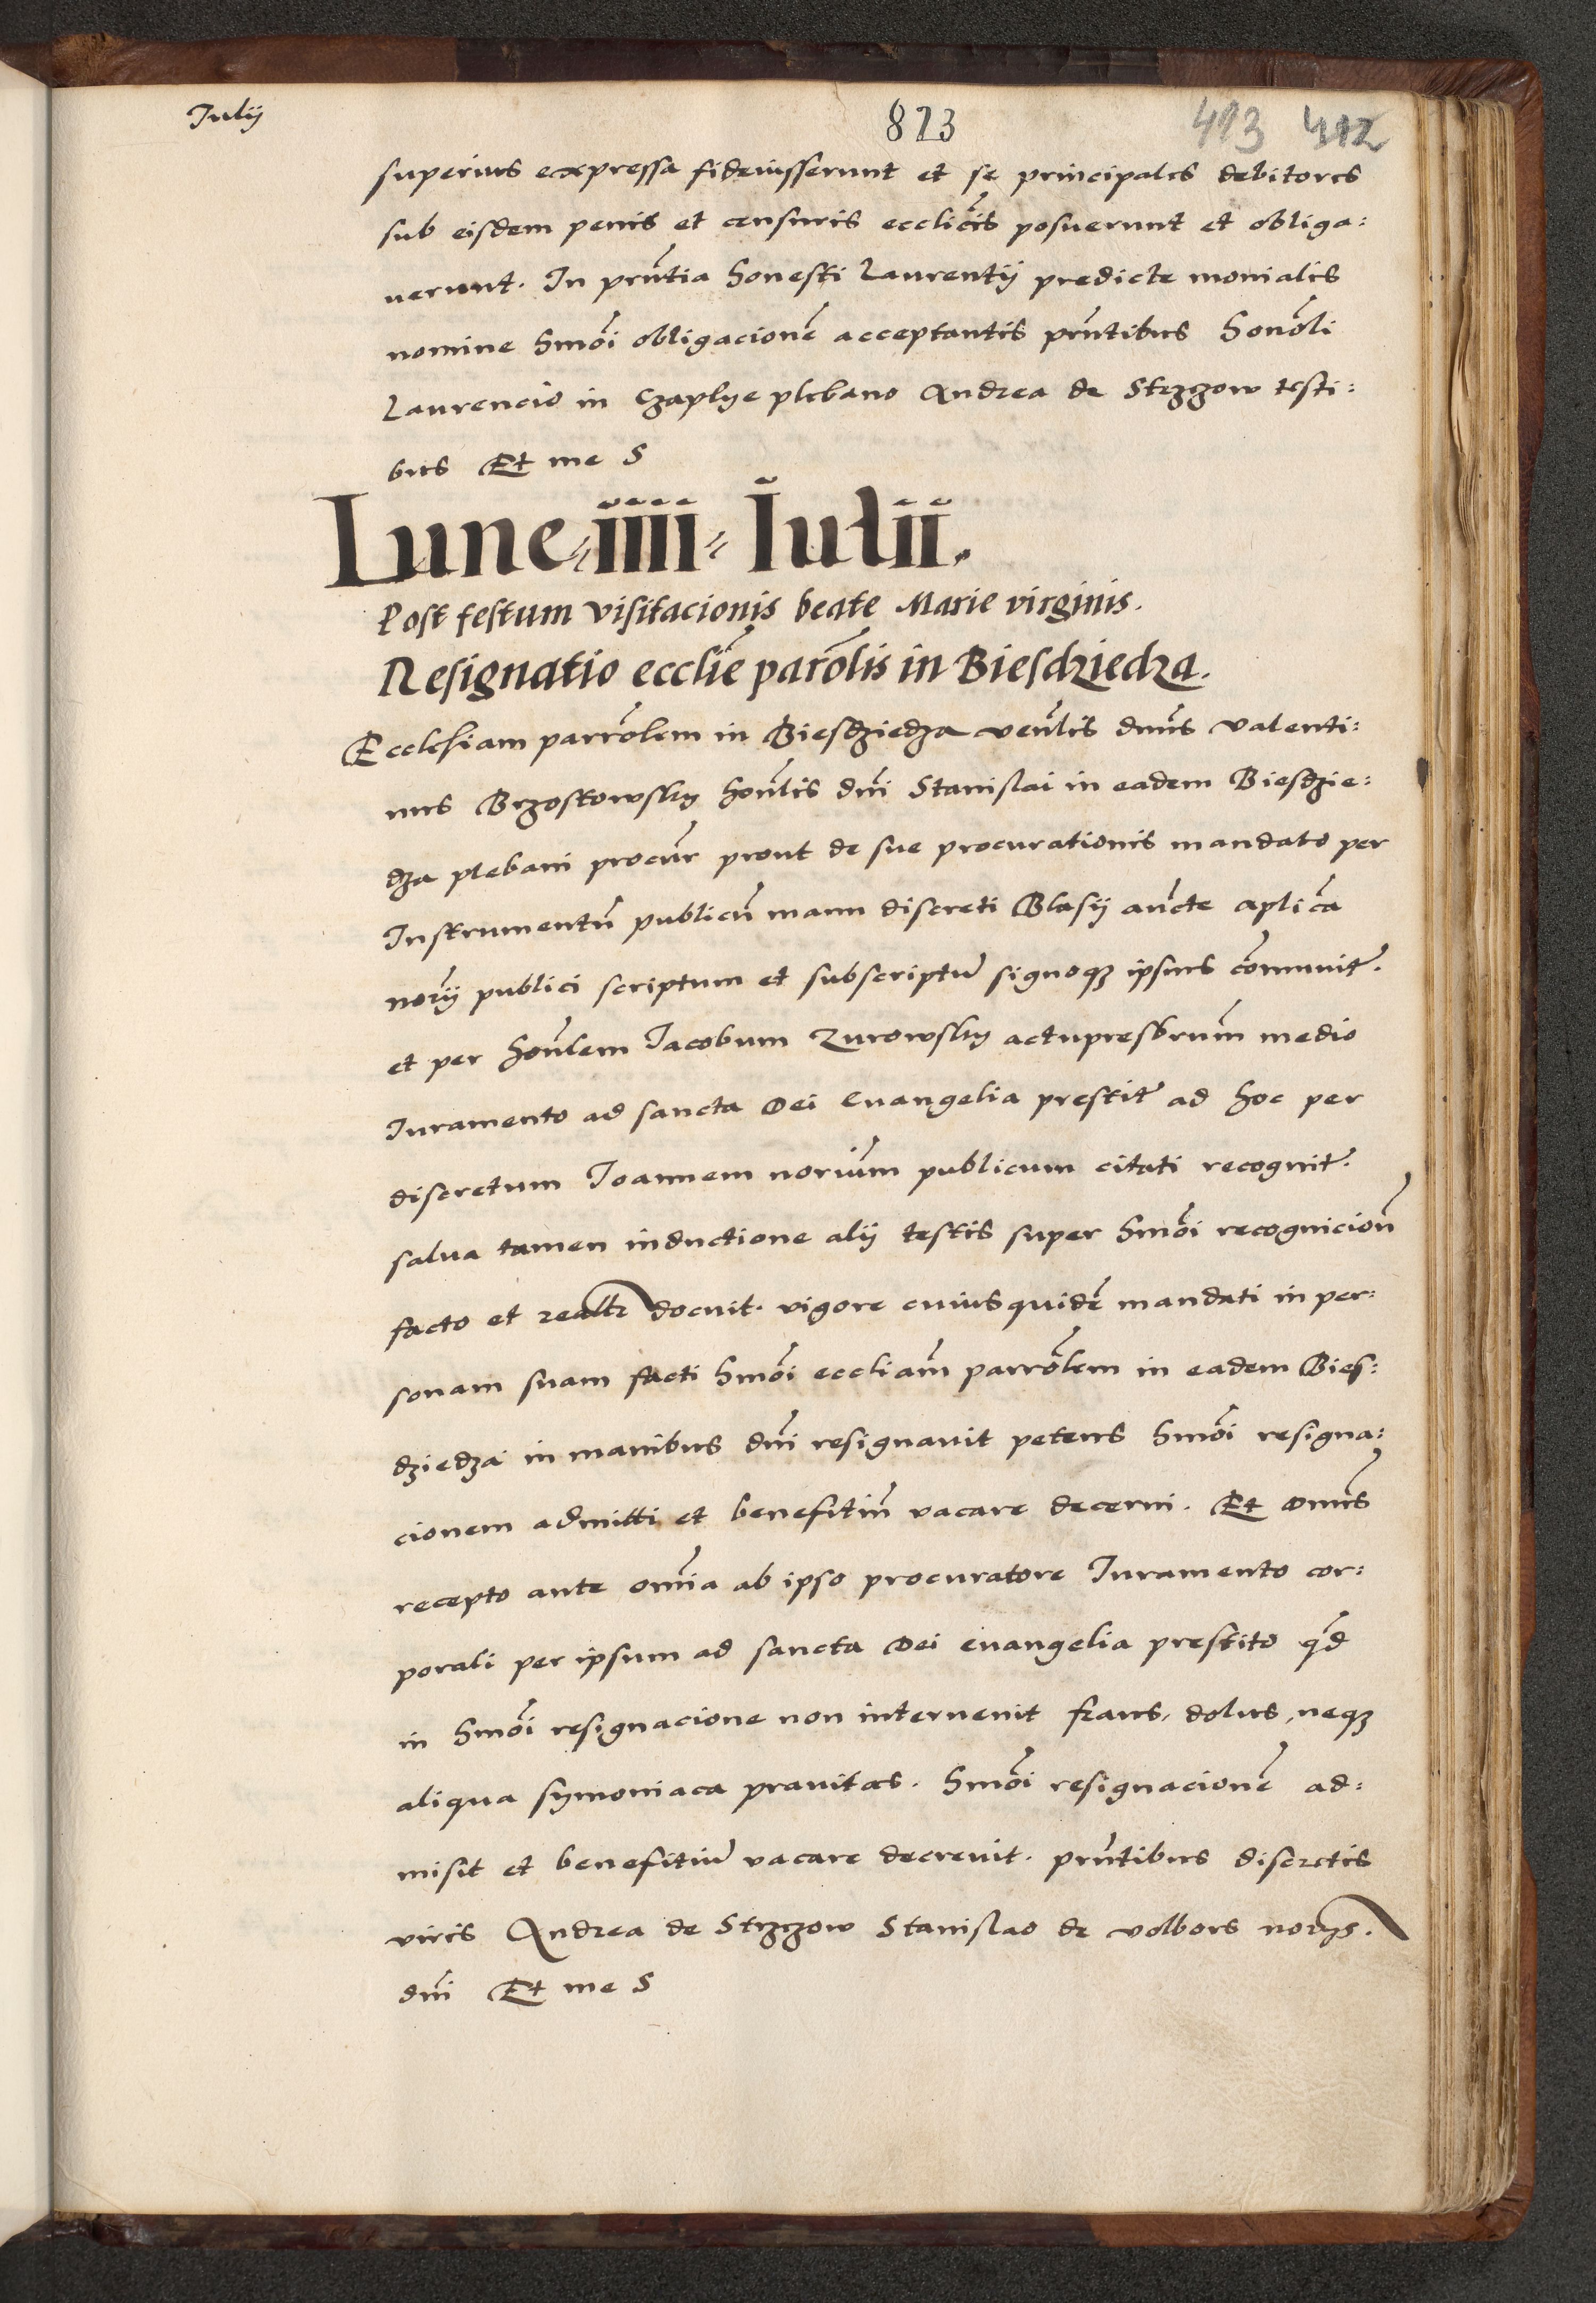 Julij
823
413 412
superius expressa fideiusserunt et se principales debitores
sub eisdem penis et censuris eccliĉis posuerunt et obliga:
uerunt. In prn̄tia honesti Laurentij predicte monialis
nomine hmōi obligacionē acceptantis prn̄tibus honōli
Laurencio in Czaplye plebano Andrea de Strzgow testi:
bus Et me S
Lune iiii Julii.
Post festum visitacionis beate Marie virginis.
Resignatio eccliē parōlis in Biesdziedza.
Ecclesiam parrōlem in Biesdziedza ven̄lis dn̄us Valenti:
nus Brzostowsky hon̄lis dn̄i Stanislai in eadem Biesdzie:
dza plebani procūr prout de sue procurationis mandato per
Instrumentū publicū manu discreti Blasij aūcte aplīca
norīj publici scriptum et subscriptū signoqȝ ipsius cōmunitū.
et per hon̄lem Jacobum Zurowsky actupresbrūm medio
Juramento ad sancta Dei Euangelia prestitū ad hoc per
discretum Joannem noriūm publicum citati recognitū.
salua tamen inductione alij testis super hmōi recognicion̄
facto et realtr docuit. vigore cuiusquidē mandati in per:
sonam suam facti hmōi eccliām parrōlem in eadem Bies:
dziedza in manibus dn̄i resignauit petens hmōi resigna:
cionem admitti et benefitiū vacare decerni. Et Dn̄us
recepto ante om̄ia ab ipso procuratore Juramento cor:
porali per ipsum ad sancta Dei euangelia prestito qd̄
in hmōi resignacione non interuenit fraus, dolus, neqȝ
aliqua symoniaca prauitas. hmōi resignacionē ad:
misit et benefitiū vacare decreuit. prn̄tibus discretis
viris Andrea de Strzgow Stanislao de Volbors norijs.
dn̄i Et me S